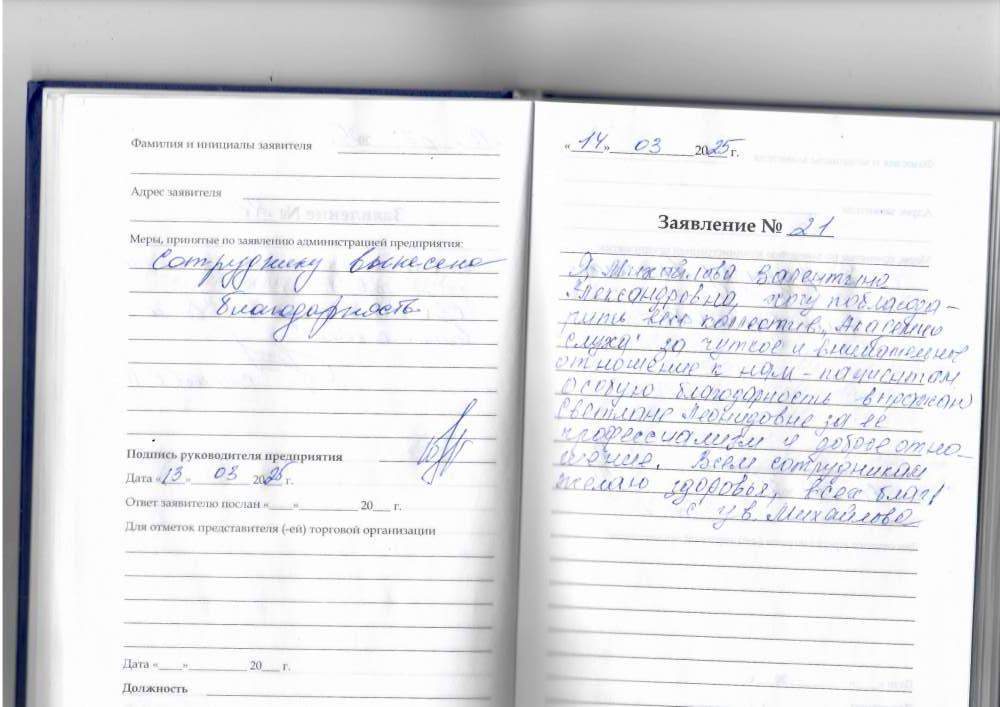 Фамилия и инициалы заявителя
Адрес заявителя
Меры, принятые по заявлению администрацией предприятия:
Сотруднику вынесена
благодарность
Подпись руководителя предприятия
Дата «13» 03 2025 г.
Ответ заявителю послан «____»__________ 20___ г.
Для отметок представителя (-ей) торговой организации
Дата «____»__________ 20___ г.
Должность
«14» 03 2025 г.
Заявление № 21
Я Михайлова Валентина
Александровна, хочу поблагода-
рить весь коллектив „Академия
слуха" за чуткое и внимательное
отношение к нам - пациентам
особую благодарность выражаю
Светлане Леонидовне за ее
профессиализм и доброе отно-
шение. Всем сотрудникам
желаю здоровья, всех благ!
С ув. Михайлова